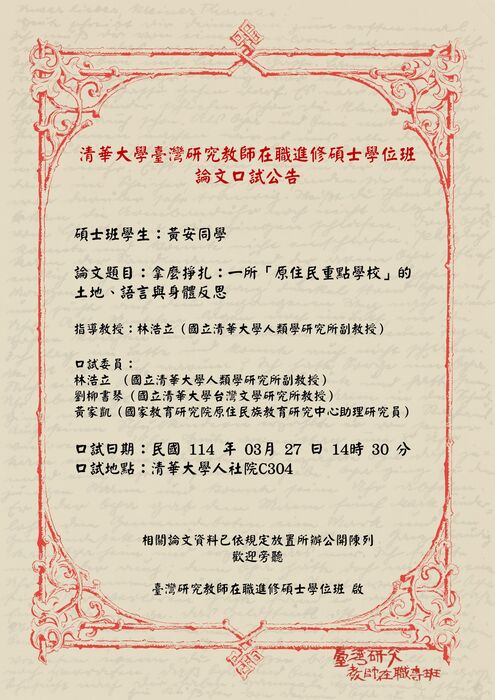 清華大學臺灣研究教師在職進修碩士學位班
論文口試公告
碩士班學生：黃安同學
論文題目：拿麼掙扎：一所「原住民重點學校」的
土地、語言與身體反思
指導教授：林浩立（國立清華大學人類學研究所副教授）
口試委員：
林浩立 （國立清華大學人類學研究所副教授）
劉柳書琴（國立清華大學台灣文學研究所教授）
黃家凱（國家教育研究院原住民族教育研究中心助理研究員）
口試日期：民國 114 年 03月 27 日 14時 30 分
口試地點：清華大學人社院C304
相關論文資料已依規定放置所辦公開陳列
歡迎旁聽
臺灣研究教師在職進修碩士學位班 啟
臺灣研究
教師在職專班